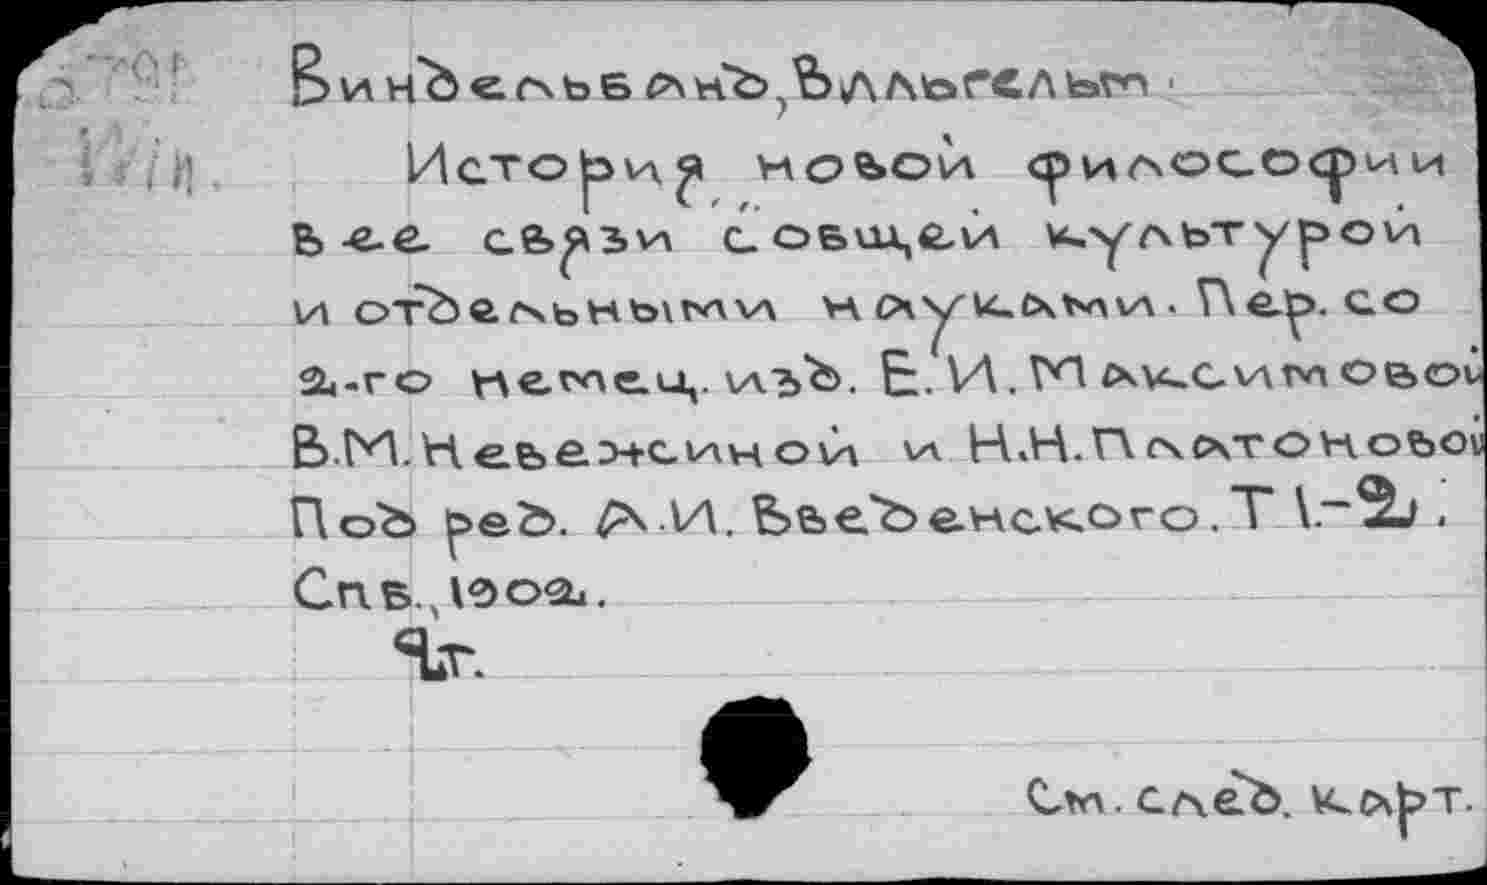 Виндельбанд, Вильгельм.
Win.
История новой философии
в ее связи с общей культурой
и отдельными науками. Пер. со
2-го немец. изд. Е.И. Максимовой
В.М. Невежиной и Н.Н. Платоновой
Под ред. А.И. Введенского. Т 1.-2.
Спб., 1902.
4т.
См. след. карт.